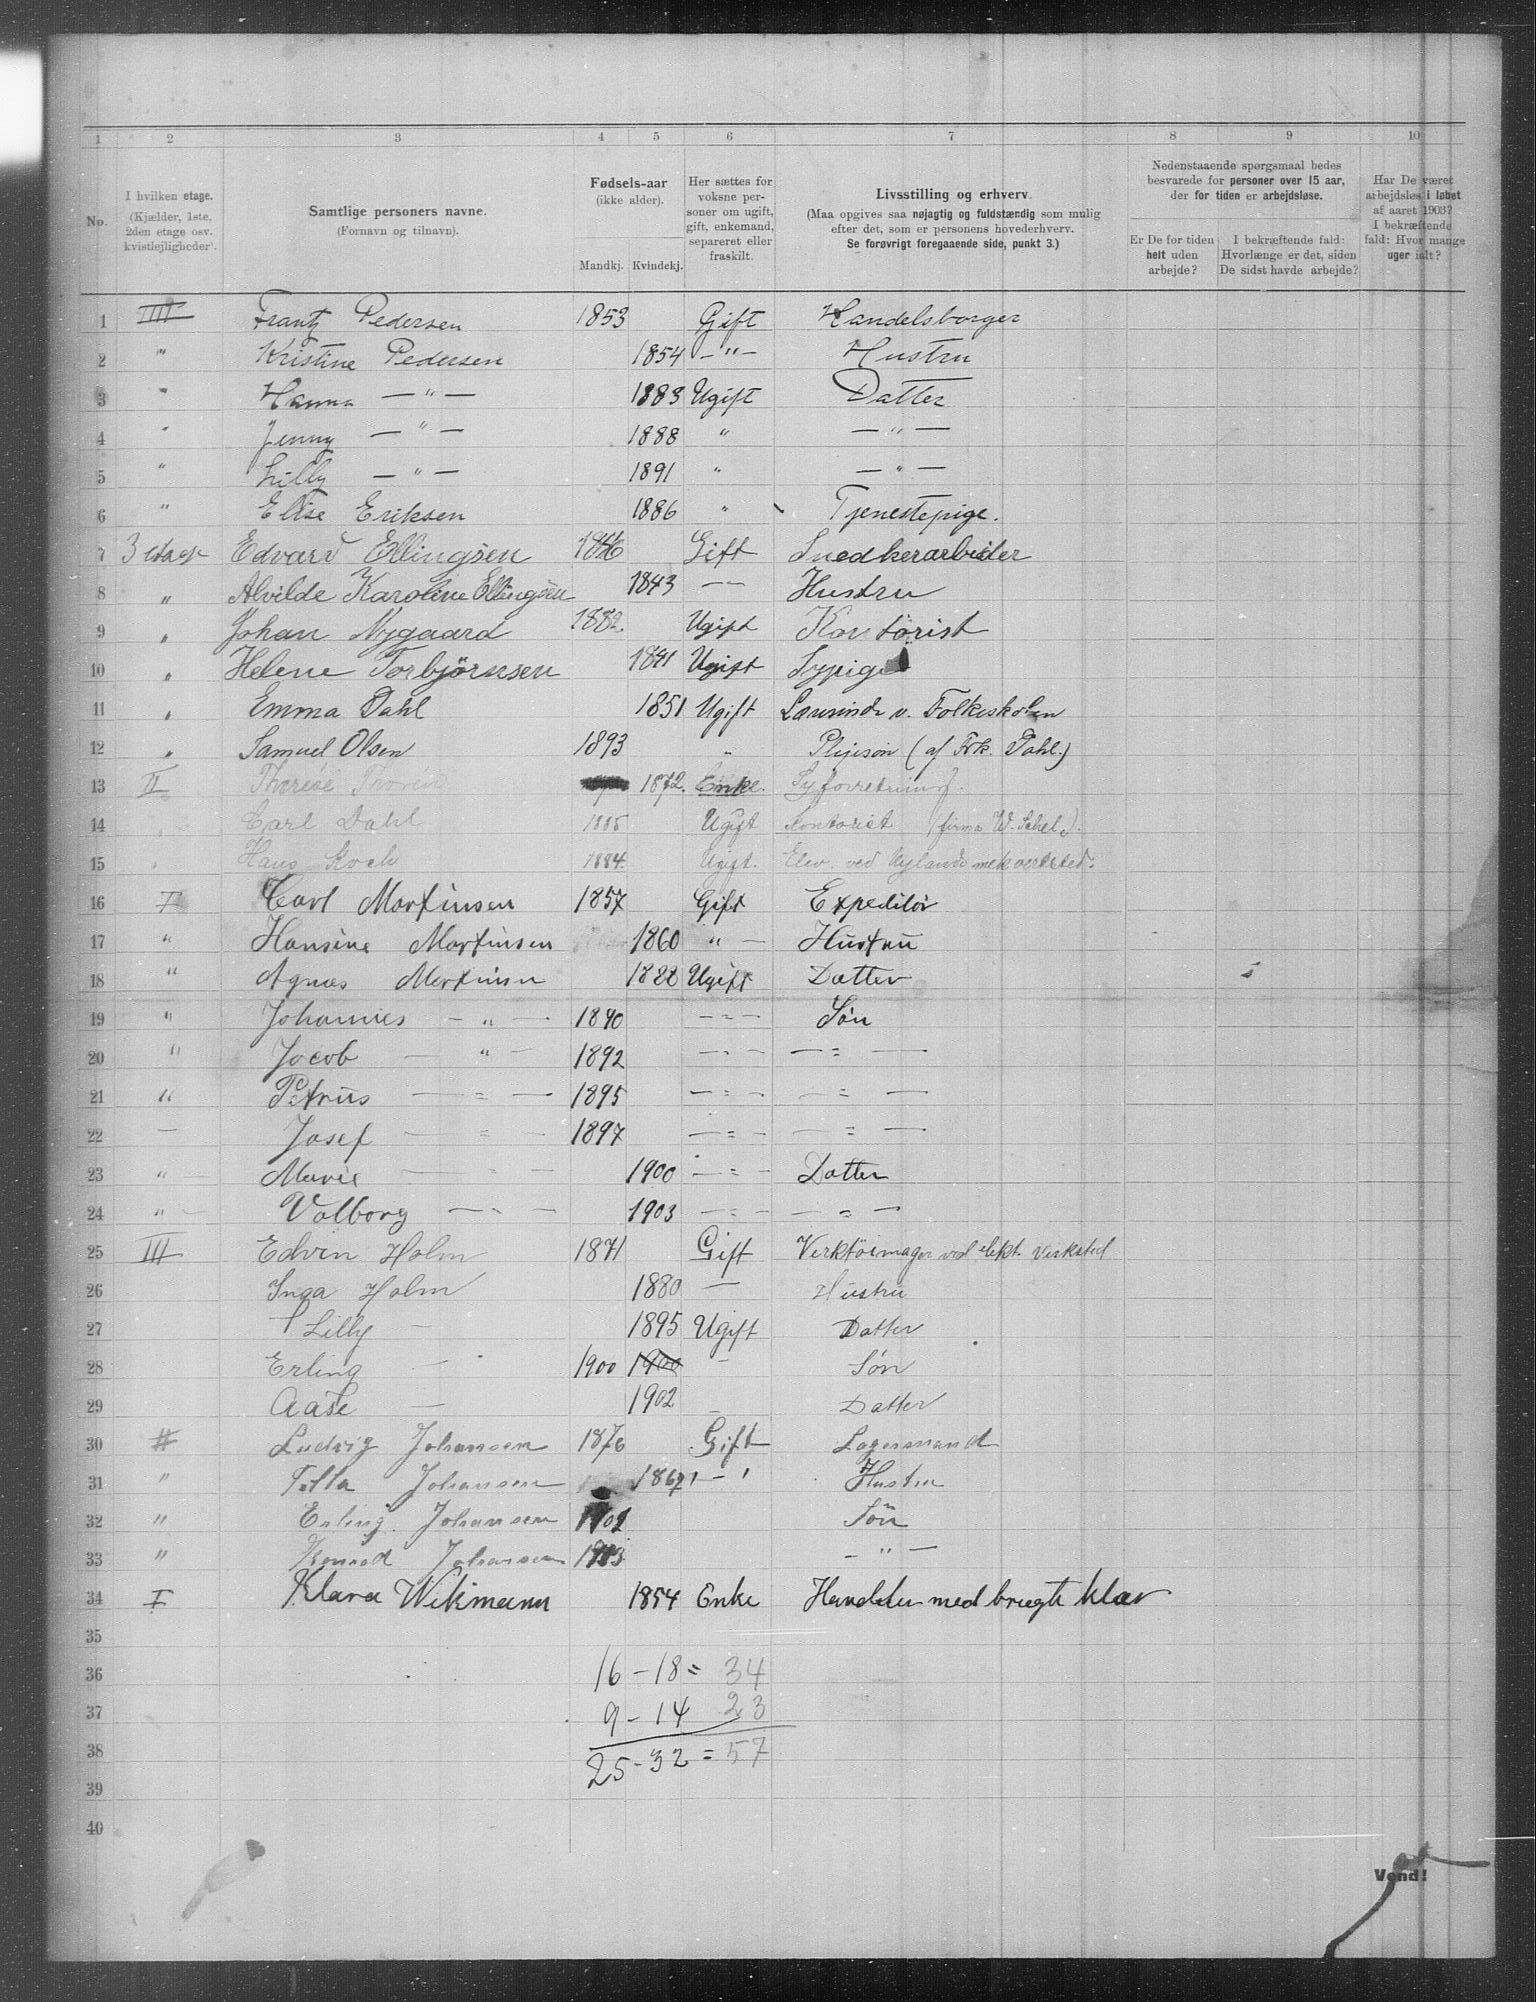 1 2 3 4 5 6 7 8 9 10
No.
I hvilken etage. (Kjælder, 1ste, 2den etage osv. kvistlejligheder).
Samtlige personers navne. (Fornavn og tilnavn).
Fødsels-aar (ikke alder). Mandkj. Kvindekj.
Her sættes for voksne personer om ugift, gift, enkemand, separeret eller fraskilt.
Livsstilling og erhverv. (Maa opgives saa nøjagtig og fuldstændig som mulig efter det, som er personens hovederhverv. Se forøvrigt foregaaende side, punkt 3.)
Nedenstaaende spørgsmaal bedes besvarede for personer over 15 aar, der for tiden er arbejdsløse.
Er De for tiden helt uden arbejde?
I bekræftende fald: Hvorlænge er det, siden De sidst havde arbejde?
Har De været arbejdsløs i løbet af aaret 1903? I bekræftende fald: Hvor mange uger ialt?
1 IIII Frantz Pedersen 1853 Gift Handelsborger
2 " Kristine Pedersen 1854 — " — Hustru
3 " Hanna — " — 1883 Ugift Datter
4 " Jenny — " — 1888 " — " —
5 " Lilly — " — 1891 " — " —
6 " Elise Eriksen 1886 " Tjenestepige.
7 3 etage Edvard Ellingsen Gift Snedkerarbeider
8 " Alvilde Karoline Ellingsen 1843 — Hustru
9 " Johan Nygaard 1882. Ugift Kontorist
10 " Helene Torbjörnsen 1841 Ugift Sypige
11 " Emma Dahl 1851 Ugift Lærerinde v. Folkeskolen
12 " Samuel Olsen 1893 " Plejesøn (af Frk. Dahl.)
13 II Therese 1872. Enke. Syforretning.
14 Carl Dahl 1885 Ugift Kontorist (firma W.
15 Hans Koch 1884. Ugift. Elev. ved Nylands mek værksted.
16 I Carl Martinsen 1857 Gift Expeditör
17 " Hansine Martinsen 1860 " — Hustru
18 " Agnes Martinsen 1888 Ugift Datter
19 " Johannes — " — 1890 — " — Sön
20 " Jacob — " — 1892 — " — — " —
21 " Petrus — " — 1895 — " — — " —
22 — Josef — " — 1897 — " — — " —
23 " Marie — " — 1900 — " — Datter
24 " Valborg — " — 1903 — " — — " —
25 III Edvin Holm 1871 Gift Verktöimager ved elekt. Verksted
26 Inga Holm 1880 — Hustru
27 Lilly — 1895 Ugift Datter
28 Erling — 1900 1900 — Sön
29 Aase — 1902 — Datter
30 II Ludvig Johansen 1876 Gift Lagermand
31 " Johansen 1867 — " Hustru
32 " Erling Johansen 1902 Sön
33 " Konrad Johansen 1903 — " —
34 I Klara Wikmann 1854 Enke Handler med brugte klær
35
36 16 – 18 = 34
37 9 – 14 23
38 25 – 32 = 57
39
40
Vend!